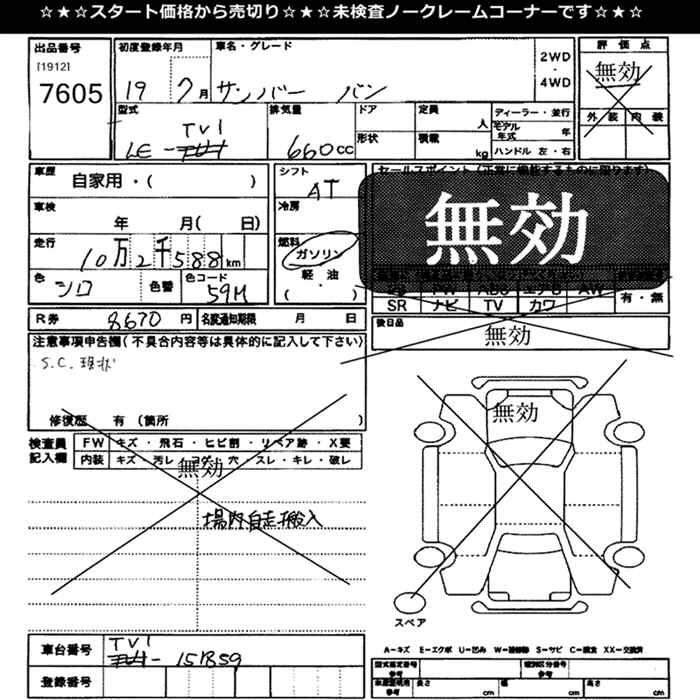 ☆★☆スタート価格から売切り☆★☆未検査ノークレームコーナーです☆★☆
出品番号
[1912]
7605
初度登録年月
19 7月
車名・グレード
サンバー バン
2WD
・
4WD
評価点
無効
外装 内装
型式
TV1
LE-
排気量
660cc
ドア
形状
定員
人
積載
kg
ディーラー・並行
モデル年式
年
ハンドル 左・右
車歴
自家用・( )
シフト
AT
車検
年 月( 日)
冷房
無効
走行
10万2千588km
燃料
ガソリン
軽・油
( )
色
シロ
色替
色コード
59M
SR ナビ TV カワ
有・無
R券
8670円
名変通知期限
月 日
後日品
無効
注意事項申告欄(不具合内容等は具体的に記入して下さい)
S.C. 現状
修復歴 有 (箇所 )
検査員
記入欄
FW キズ・飛石・ヒビ割・リペア跡・X要
内装 キズ・汚レ・コゲ・穴・スレ・キレ・破レ
無効
場内自走搬入
無効
スペア
A-キズ E-エクボ U-凹み W-補修跡 S-サビ C-腐食 XX-交換済
車台番号
TV1
- 151859
登録番号
型式指定番号
参考
類別区分番号
参考
長さ cm
幅 cm
高さ cm